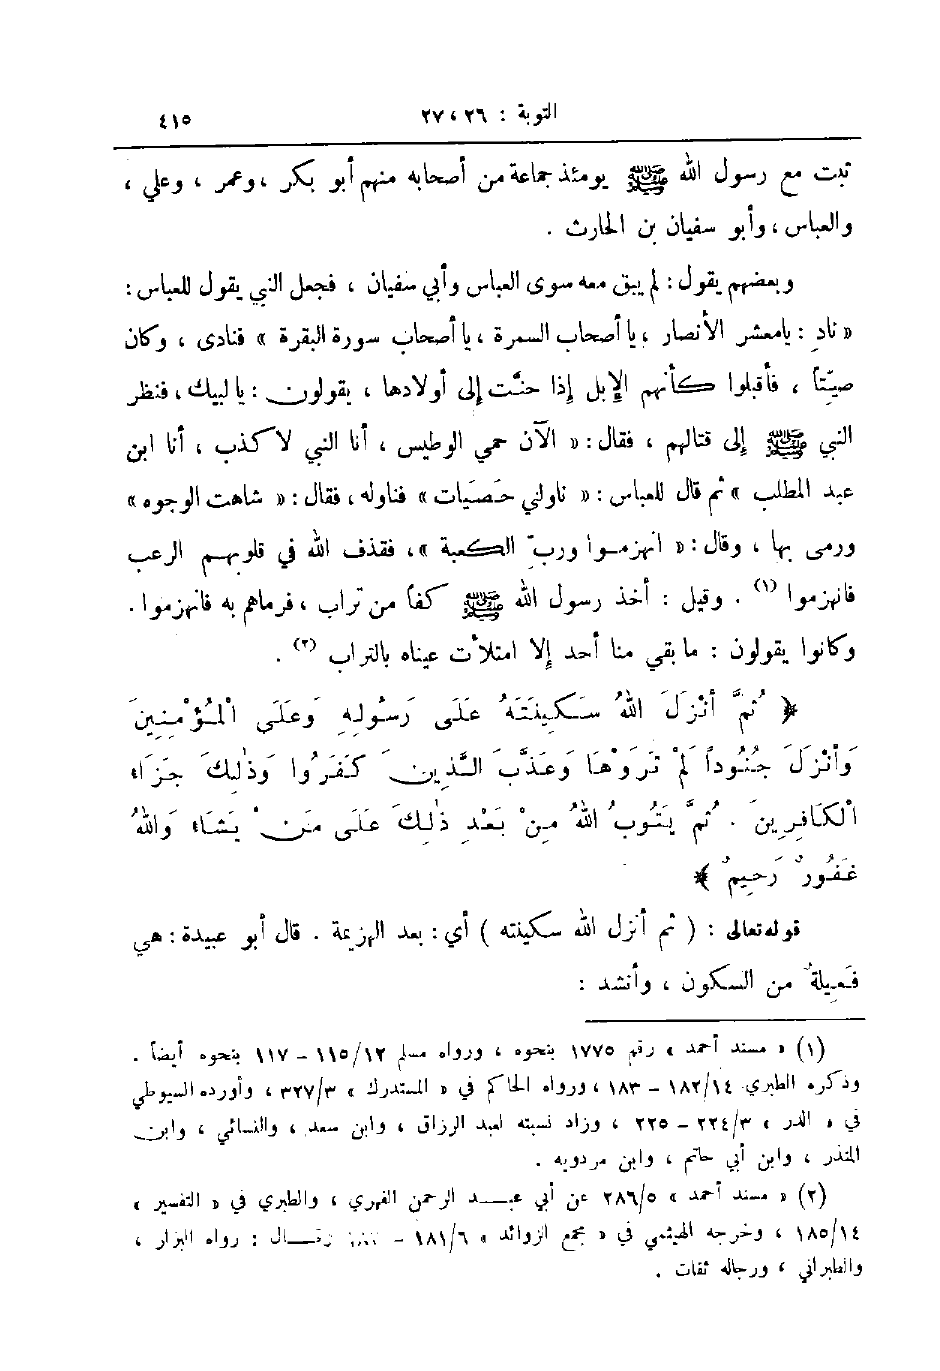 التوبة : ٢٦ ، ٢٧ ٤١٥
ثبت مع رسول الله ﷺ يومئذ جماعة من أصحابه منهم أبو بكر ، وعمر ، وعلي ،
والعباس ، وأبو سفيان بن الحارث .
وبعضهم يقول : لم يبق معه سوى العباس وأبي سفيان ، فجعل النبي يقول للعباس :
« نادِ : يامعشر الأنصار ، يا أصحاب السمرة ، يا أصحاب سورة البقرة » فنادى ، وكان
صيّتاً ، فأقبلوا كأنهم الإبل إذا حنَّت إلى أولادها ، يقولون : يا لبيك ، فنظر
النبي ﷺ إلى قتالهم ، فقال : « الآن حمي الوطيس ، أنا النبي لا كذب ، أنا ابن
عبد المطلب » ثم قال للعباس : « ناولني حَصَيات » فناوله ، فقال : « شاهت الوجوه »
ورمى بها ، وقال : « انهزموا وربِّ الكعبة » ، فقذف الله في قلوبهم الرعب
فانهزموا (١) . وقيل : أخذ رسول الله ﷺ كفاً من تراب ، فرماهم به فانهزموا .
وكانوا يقولون : ما بقي منا أحد إلا امتلأت عيناه بالتراب (٢) .
﴿ ثُمَّ أَنْزَلَ اللهُ سَكِينَتَهُ عَلَى رَسُولِهِ وَعَلَى الْمُؤْمِنِينَ
وَأَنْزَلَ جُنُوداً لَمْ تَرَوْهَا وَعَذَّبَ الَّذِينَ كَفَرُوا وَذٰلِكَ جَزَاءُ
الْكَافِرِينَ . ثُمَّ يَتُوبُ اللهُ مِنْ بَعْدِ ذٰلِكَ عَلَى مَنْ يَشَاءُ وَاللهُ
غَفُورٌ رَحِيمٌ ﴾
قوله تعالى : ( ثم أنزل الله سكينته ) أي : بعد الهزيمة . قال أبو عبيدة : هي
فَعِيلةٌ من السكون ، وأنشد :
(١) « مسند أحمد » رقم ١٧٧٥ بنحوه ، ورواه مسلم ١١٥/١٢ - ١١٧ بنحوه أيضاً .
وذكره الطبري ١٨٢/١٤ - ١٨٣ ، ورواه الحاكم في « المستدرك » ٣٢٧/٣ ، وأورده السيوطي
في « الدر » ٢٢٤/٣ - ٢٢٥ ، وزاد نسبته لعبد الرزاق ، وابن سعد ، والنسائي ، وابن
المنذر ، وابن أبي حاتم ، وابن مردويه .
(٢) « مسند أحمد » ٢٨٦/٥ عن أبي عبد الرحمن الفهري ، والطبري في « التفسير »
١٨٥/١٤ ، وخرجه الهيثمي في « مجمع الزوائد » ١٨١/٦ - وقال : رواه البزار ،
والطبراني ، ورجاله ثقات .